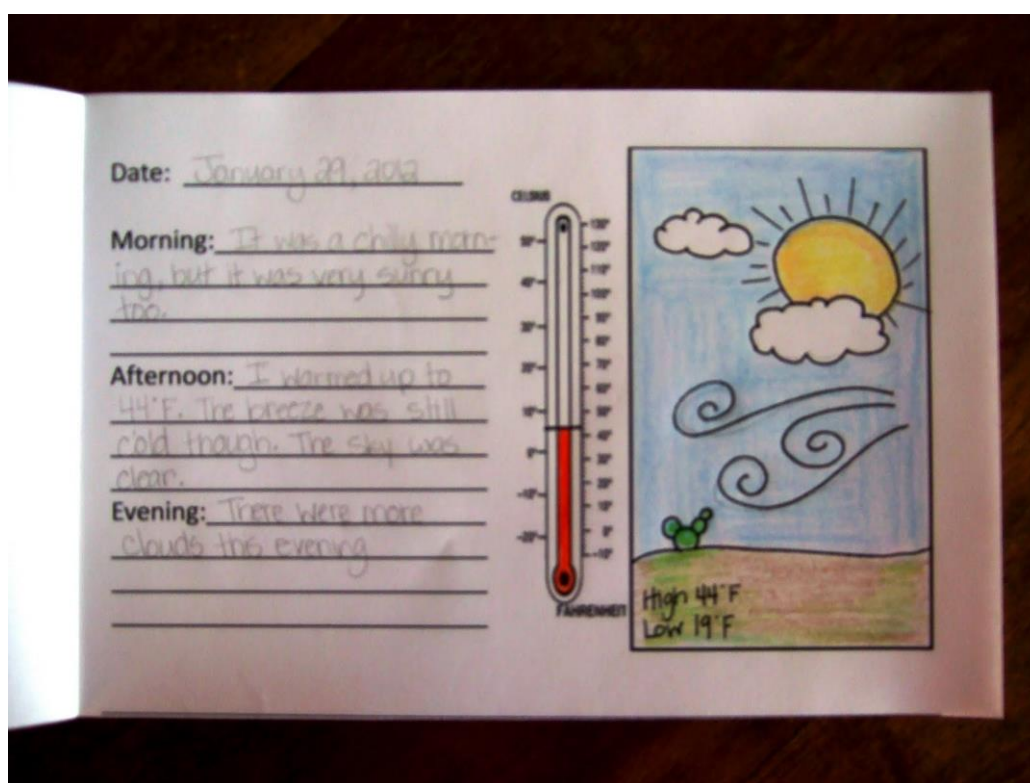 Date: January 29, 2012
Morning: It was a chilly morn-
ing, but it was very sunny
too.
Afternoon: I warmed up to
44°F. The breeze was still
cold though. The sky was
clear.
Evening: There were more
clouds this evening
CELSIUS
50°
40°
30°
20°
10°
0°
-10°
-20°
130°
120°
110°
100°
90°
80°
70°
60°
50°
40°
30°
20°
10°
0°
-10°
FAHRENHEIT
High 44°F
Low 19°F